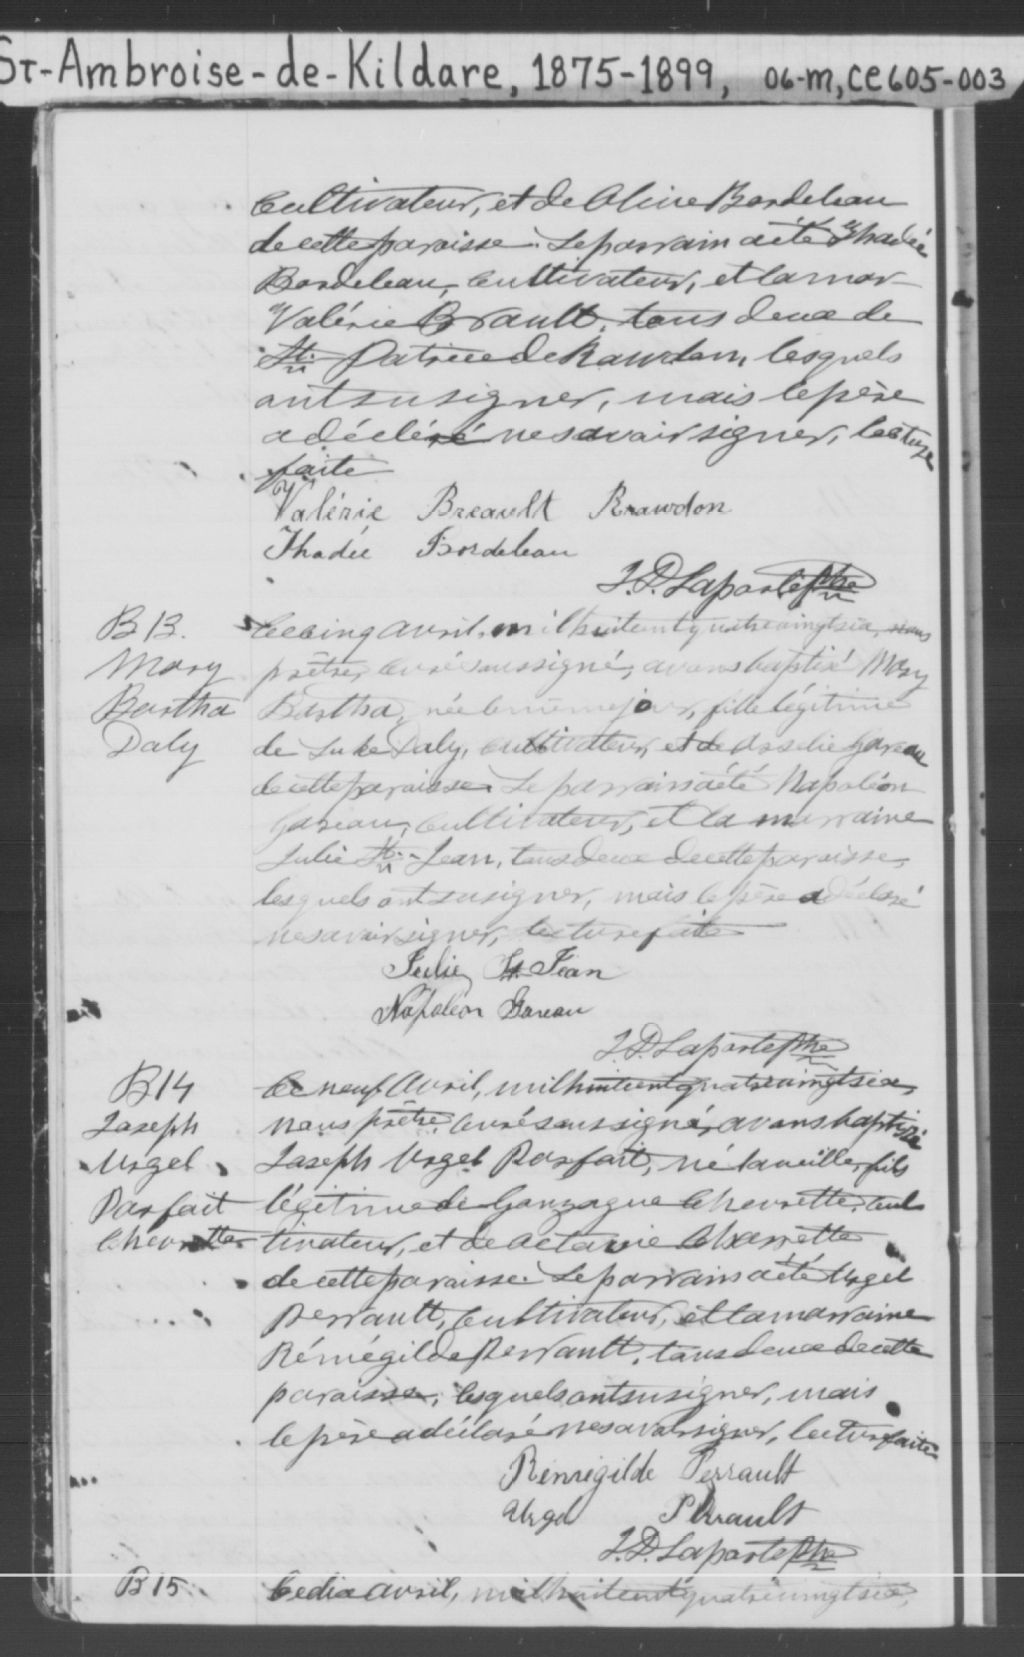 St-Ambroise-de-Kildare, 1875-1899, 06-M, CE605-003
Cultivateur, et de Oline Bordeleau
de cette paroisse. Le parrain a été Thadée
Bordeleau, Cultivateur, et la mar-
Valérie Brault, tous deux de
St. Patrice de Rawdon, lesquels
ont su signer, mais le père
a déclaré ne savoir signer, lecture
faite
Valérie Breault Rrawdon
Thadée Bordeleau
J.D. Laporte Ptre
B 13.
Mary
Bertha
Daly
Le cinq Avril, mil huit cent quatre vingt six, nous
prêtre, Curé soussigné, avons baptisé Mary
Bertha, née le même jour, fille légitime
de Luke Daly, Cultivateur, et de Rosélie Gareau
de cette paroisse. Le parrain a été Napoléon
Gareau, Cultivateur, et la marraine
Julie St-Jean, tous deux de cette paroisse,
lesquels ont su signer, mais le père a déclaré
ne savoir signer, lecture faite
Julie St. Jean
Napoléon Gareau
J.D. Laporte Ptre
B14
Joseph
Urgel
Parfait
Chevrette
Le neuf Avril, mil huit cent quatre vingt six,
nous prêtre Curé soussigné, avons baptisé
Joseph Urgel Parfait, né la veille, fils
légitime de Gonzague Chevrette, Cul
tivateur, et de Octavie Charrette
de cette paroisse. Le parrain a été Urgel
Perrault, Cultivateur, et la marraine
Rémégilde Perrault, tous deux de cette
paroisse, lesquels ont su signer, mais
le père a déclaré ne savoir signer, lecture faite
Rémégilde Perrault
Urgel Perrault
J.D. Laporte Ptre
B 15
Le dix avril, mil huit cent quatre vingt six,